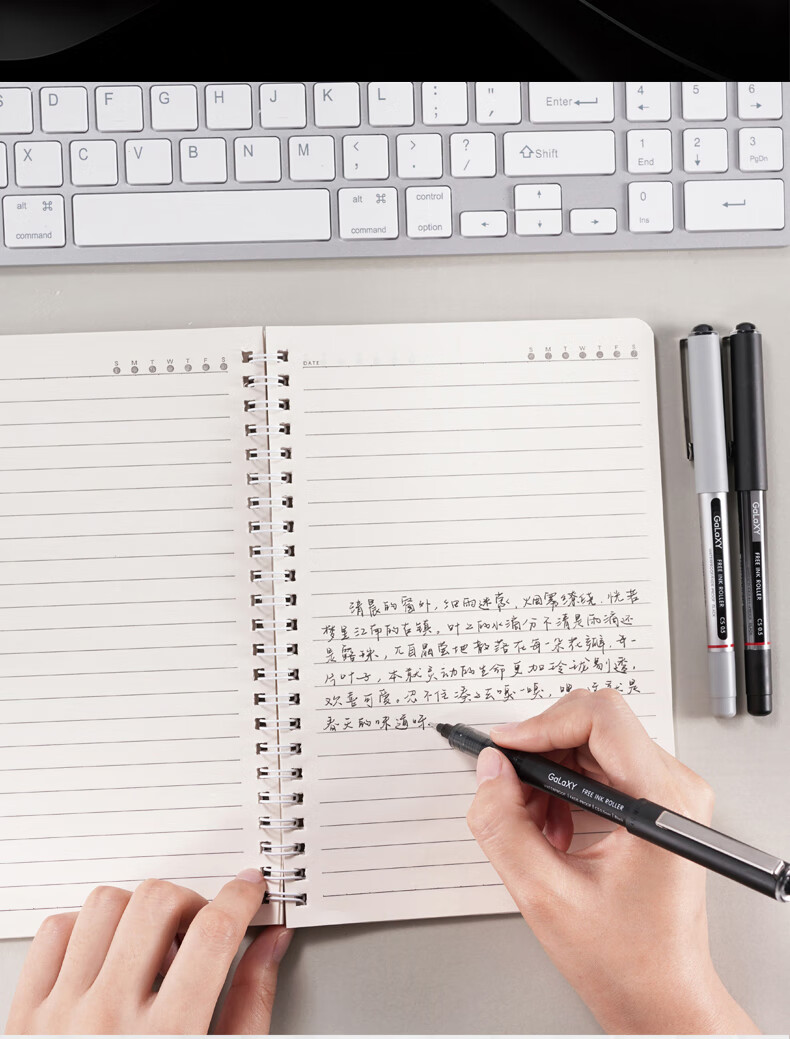 S D F G H J K L : ; " , Enter 4 5 6
X C V B N M < , > . ? / Shift 1 End 2 3 PgDn
alt command alt command control option 0 Ins
S M T W T F S
DATE S M T W T F S
清晨的窗外，细雨迷蒙，烟雾缭绕，恍若
梦里江南的古镇。叶上的水滴分不清是雨滴还
是露珠，兀自晶莹地散落在每一朵花瓣，每一
片叶子，本就灵动的生命更加玲珑剔透，
欢喜可爱。忍不住凑上去嗅一嗅，嗯
春天的味道
GaLaXY FREE INK ROLLER CS 0.5
GaLaXY FREE INK ROLLER CS 0.5
GaLaXY FREE INK ROLLER